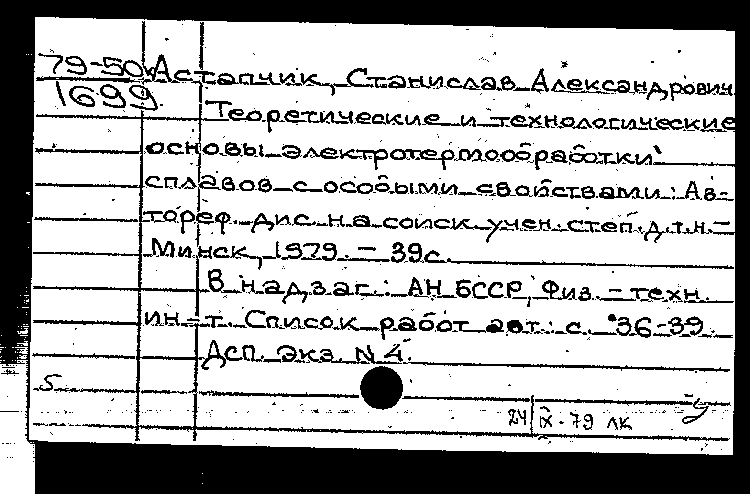 79-50 Астапчик, Станислав Александрович
1699. Теоретические и технологические
основы электротермообработки
сплавов с особыми свойствами: Ав-
тореф. дис. на соиск. учен. степ. д.т.н. -
Минск, 1979. - 39 с.
В надзаг.: АН БССР, Физ. - техн.
ин-т. Список работ авт.: с. 36-39.
Дсп. Экз. N 4.
5 у
24/IX-79 ЛК